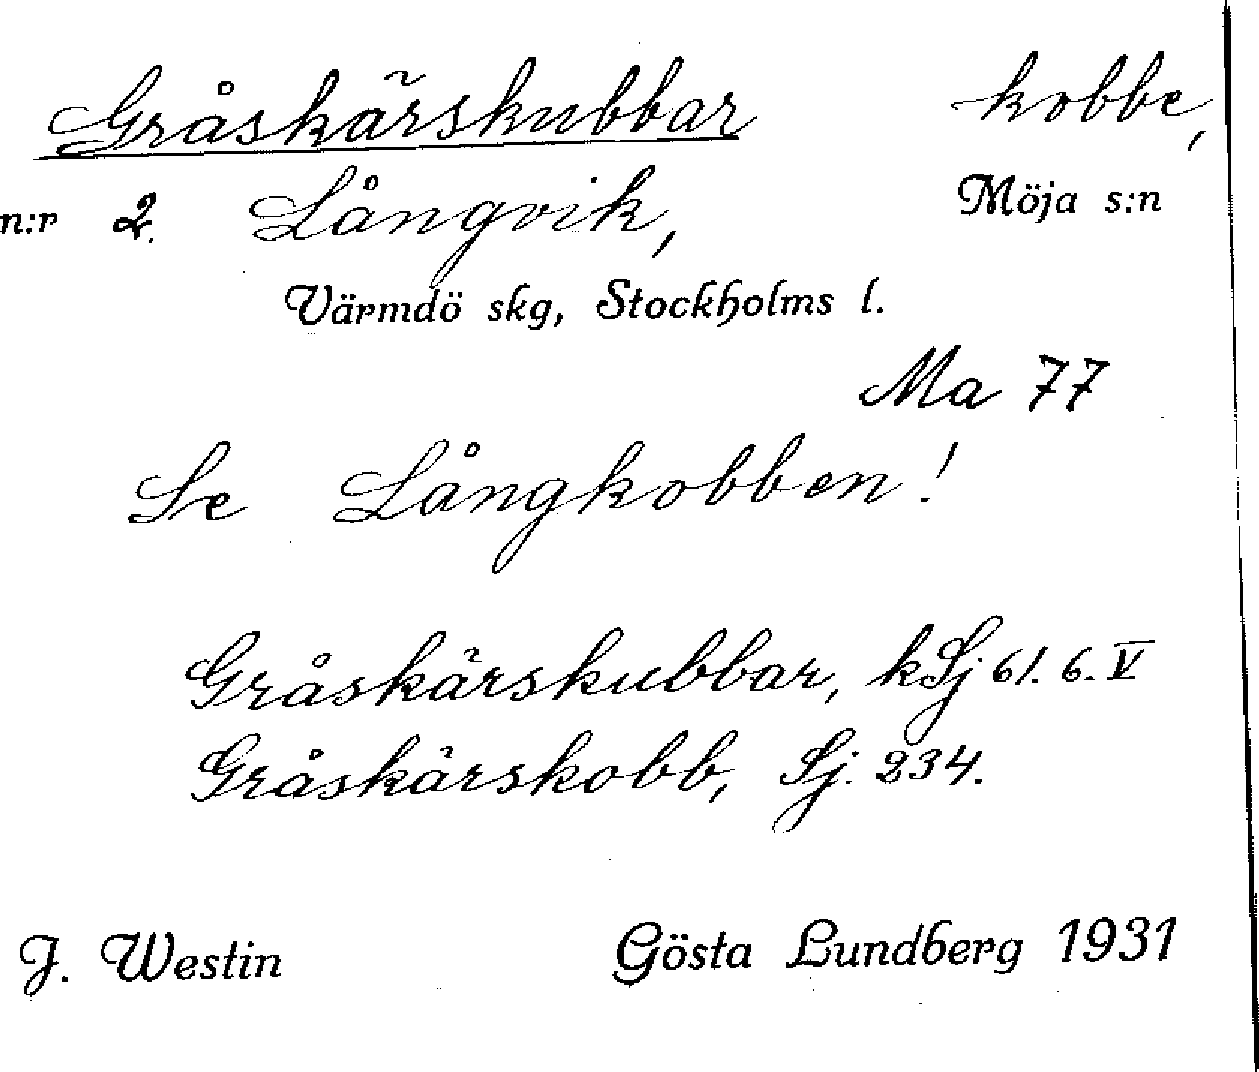 Gråskärskubbar kobbe,
n:r 2. Långvik, Möja s:n
Värmdö skg, Stockholms l.
Ma 77
Se Långkobben!
Gråskärskubbar, kSj 61. 6. V
Gråskärskobb, Sj. 234.
J. Westin Gösta Lundberg 1931